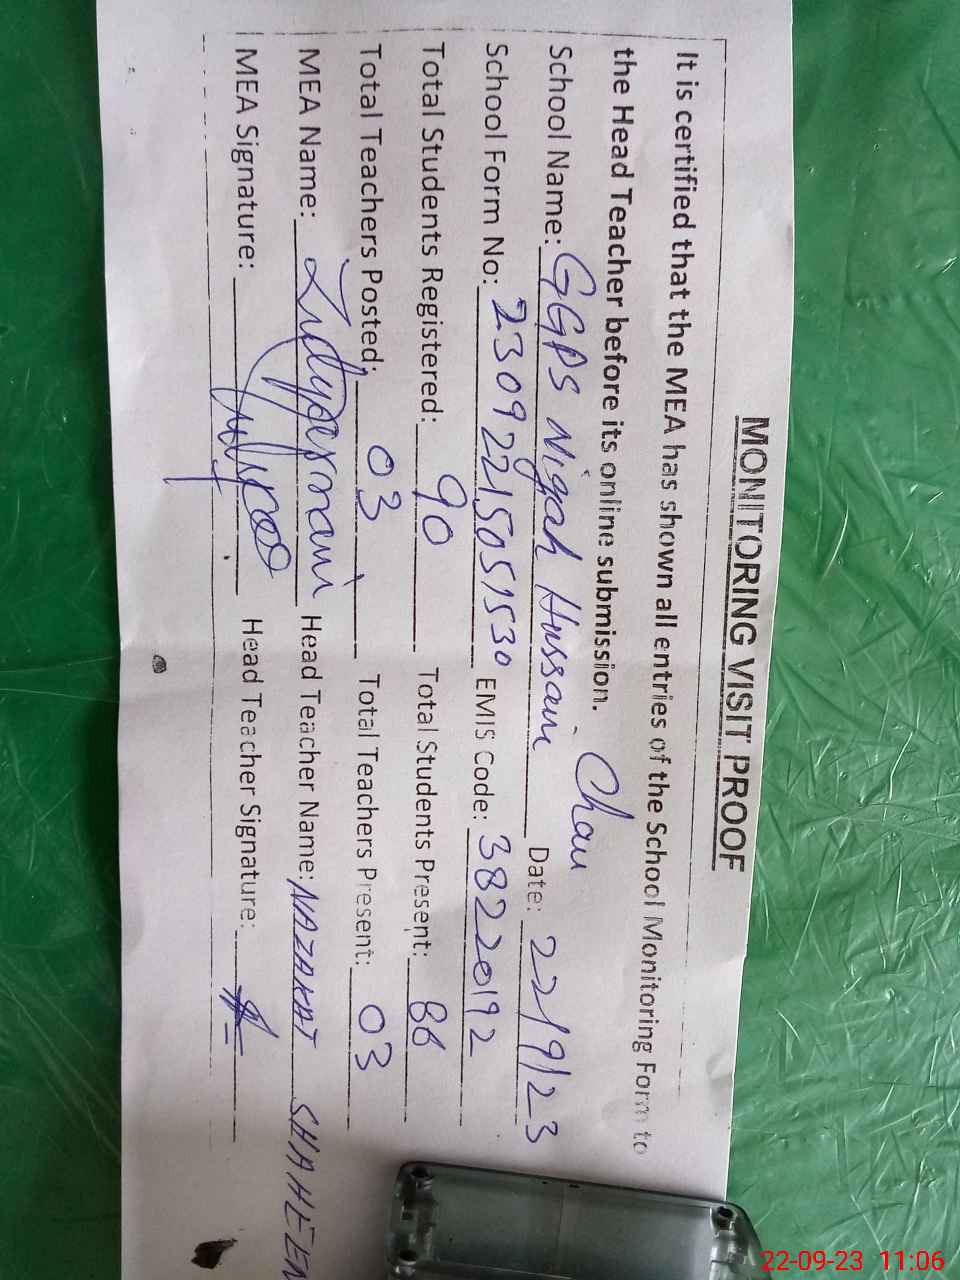 MONITORING VISIT PROOF
It is certified that the MEA has shown all entries of the School Monitoring Form to
the Head Teacher before its online submission.
School Name: GGPS Nigah Hussain Chan Date: 22/9/23
School Form No: 23092215051530 EMIS Code: 38220192
Total Students Registered: 90 Total Students Present: 86
Total Teachers Posted: 03 Total Teachers Present: 03
MEA Name: Head Teacher Name: NAZAKAT SHAHEEN
MEA Signature: Head Teacher Signature:
22-09-23 11:06